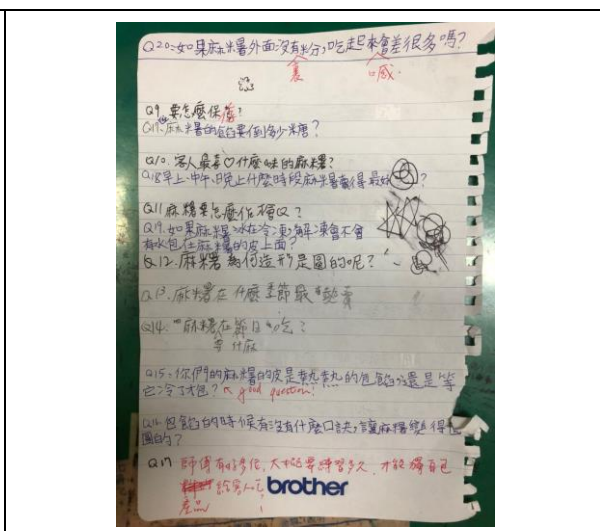 Q20:如果麻糬外面沒有粉,吃起來會差很多嗎?
裹
Q9 要怎麼保
Q17.麻糬的餡要倒多少糖?
Q10. 客人最喜♡什麼味的麻糬?
Q18早上、中午、晚上什麼時段麻糬賣得最好?
Q11 麻糬要怎麼作
Q19.如果麻糬冰在冷凍,解凍會不會
有水包在麻糬的皮上面?
Q.12.麻糬為何造形是圓的呢?
Q.13.麻糬在什麼季節最熱賣
Q14. 麻糬在節日吃?
什麼
Q15、你們的麻糬的皮是熱熱的包餡,還是等
它冷了才包? good question!
包餡的時候有沒有什麼口訣,讓麻糬變得
圓的?
Q17 師傅有 大概要練習多久 才能獨自包
給客人吃
產品
brother